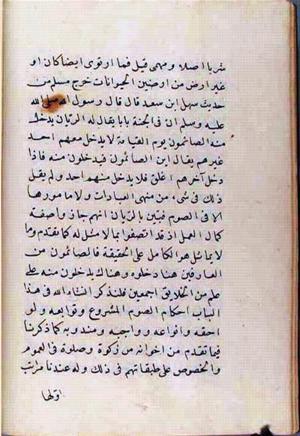 شربا اصلا ومهى قيل فيما ارتوى ايضا كان او
غير ارض من ارضين الحيوانات خرج مسلم من
حديث سهل ابن سعد قال قال رسول الله صلى الله
عليه وسلم ان في الجنة بابا يقال له الريان يدخل
منه الصائمون يوم القيامة لا يدخل معهم احد
غيرهم يقال اين الصائمون فيدخلون منه فاذا
دخل آخرهم اغلق فلا يدخل منهم احد ولم يقل
ذلك في شىء من منهى العبادات ولا مامورها
الا في الصوم فبين بالريان انهم جازوا صفة
كمال العمل اذ قد اتصفوا بما لا مثل له كما تقدم وما
لا يماثل هو الكامل على الحقيقة فالصائمون من
العارفين هنا دخلوه وهناك يدخلون منه على
علم من الخلايق اجمعين فلنذكر ان شاء الله في هذا
الباب احكام الصوم المشروع وتوابعه ولو
احقه وانواعه وواجبه ومندوبه كما ذكرنا
فيما تقدم من اخوانه من زكوة وصلوة في العموم
والخصوص على طبقاتهم في ذلك وله عندنا مراتب
اولها